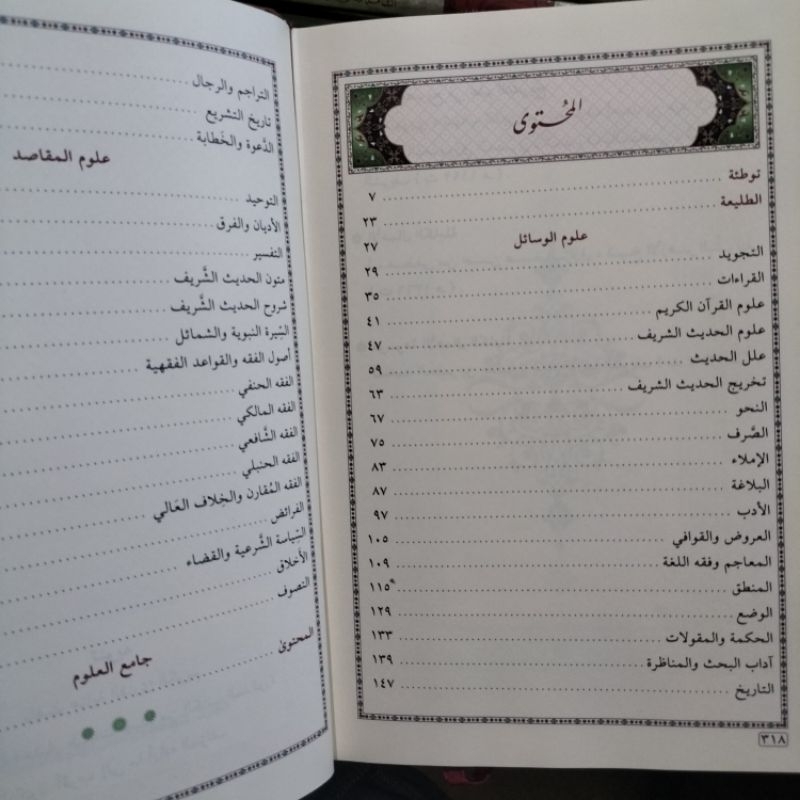 المحتوى
توطئة ٧
الطليعة ٢٣
علوم الوسائل ٢٧
التجويد ٢٩
القراءات ٣٥
علوم القرآن الكريم ٤١
علوم الحديث الشريف ٤٧
علل الحديث ٥٩
تخريج الحديث الشريف ٦٣
النحو ٦٧
الصَّرف ٧٥
الإملاء ٨٣
البلاغة ٨٧
الأدب ٩٧
العروض والقوافي ١٠٥
المعاجم وفقه اللغة ١٠٩
المنطق ١١٥
الوضع ١٢٩
الحكمة والمقولات ١٣٣
آداب البحث والمناظرة ١٣٩
التاريخ ١٤٧
٣١٨
التراجم والرجال
تاريخ التشريع
الدَّعوة والخَطابة
علوم المقاصد
التوحيد
الأديان والفرق
التفسير
متون الحديث الشَّريف
شروح الحديث الشَّريف
السِّيرة النبوية والشمائل
أصول الفقه والقواعد الفقهية
الفقه الحنفي
الفقه المالكي
الفقه الشَّافعي
الفقه الحنبلي
الفقه المُقارن والخِلاف العَالي
الفرائض
السِّياسة الشَّرعية والقضاء
الأخلاق
التصوف
جامع العلوم
المحتوى